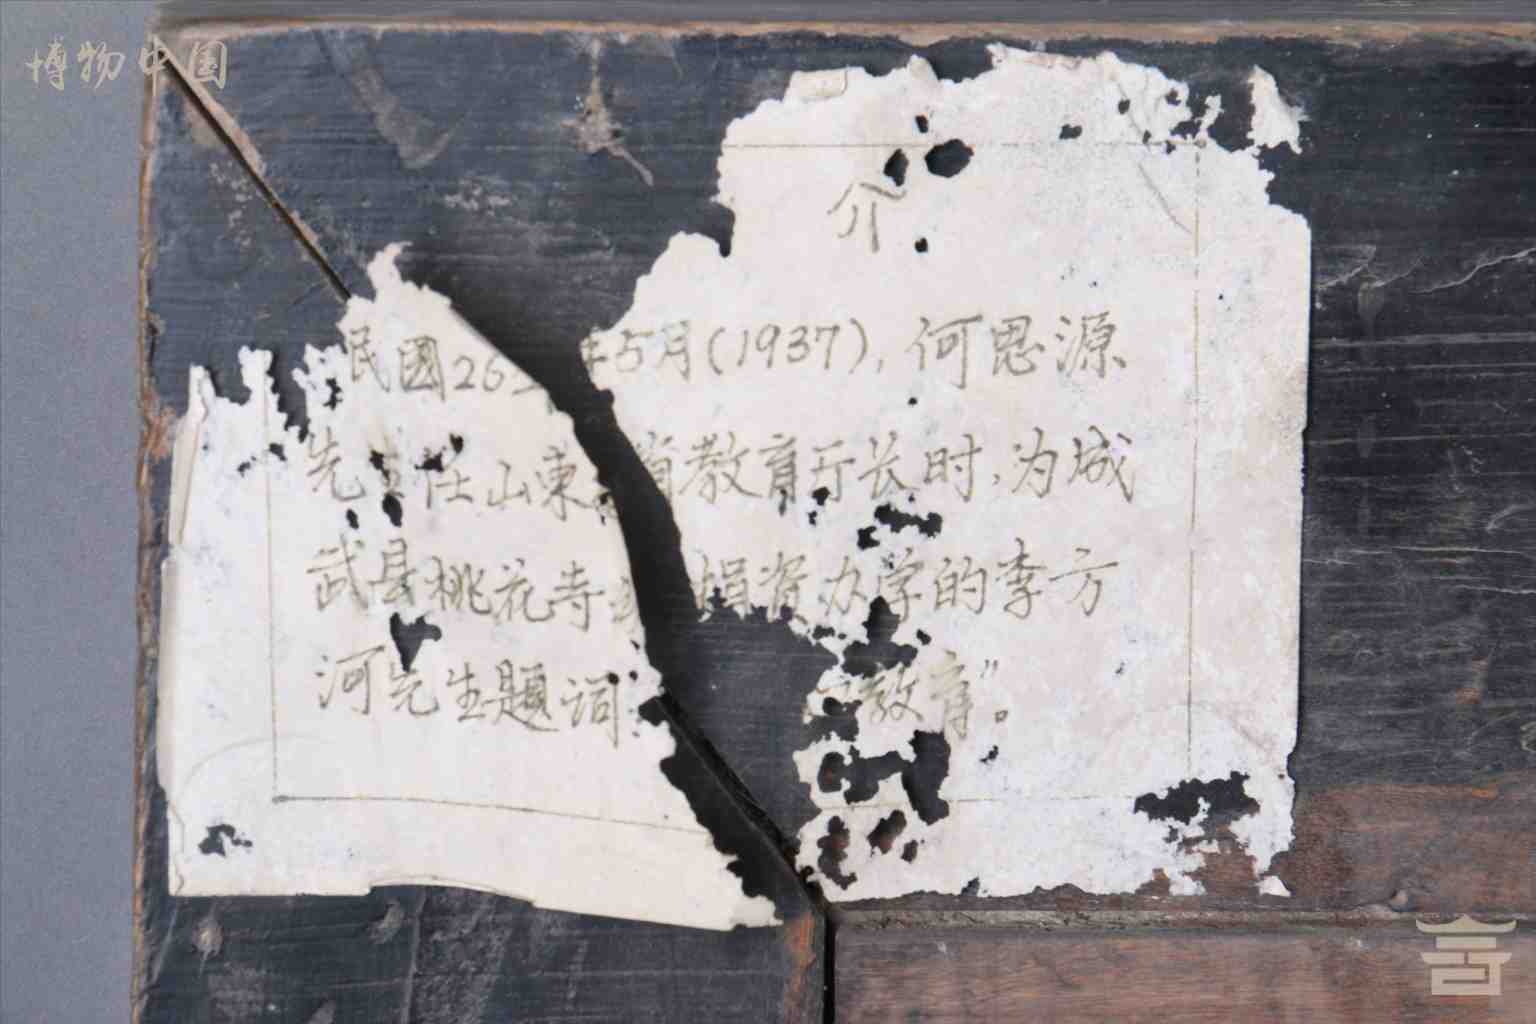 博物中国
介
民國26年5月(1937),何思源
先生任山東省教育厅长时,为城
武县桃花寺 捐资办学的李方
河先生题词: 教育”。